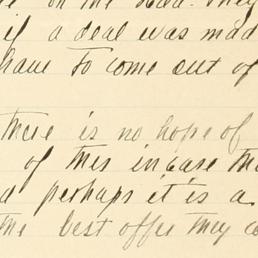 on the
if a deal was mad
have to come out of
there is no hope of
of this in case th
perhaps it is a
the best offer they c